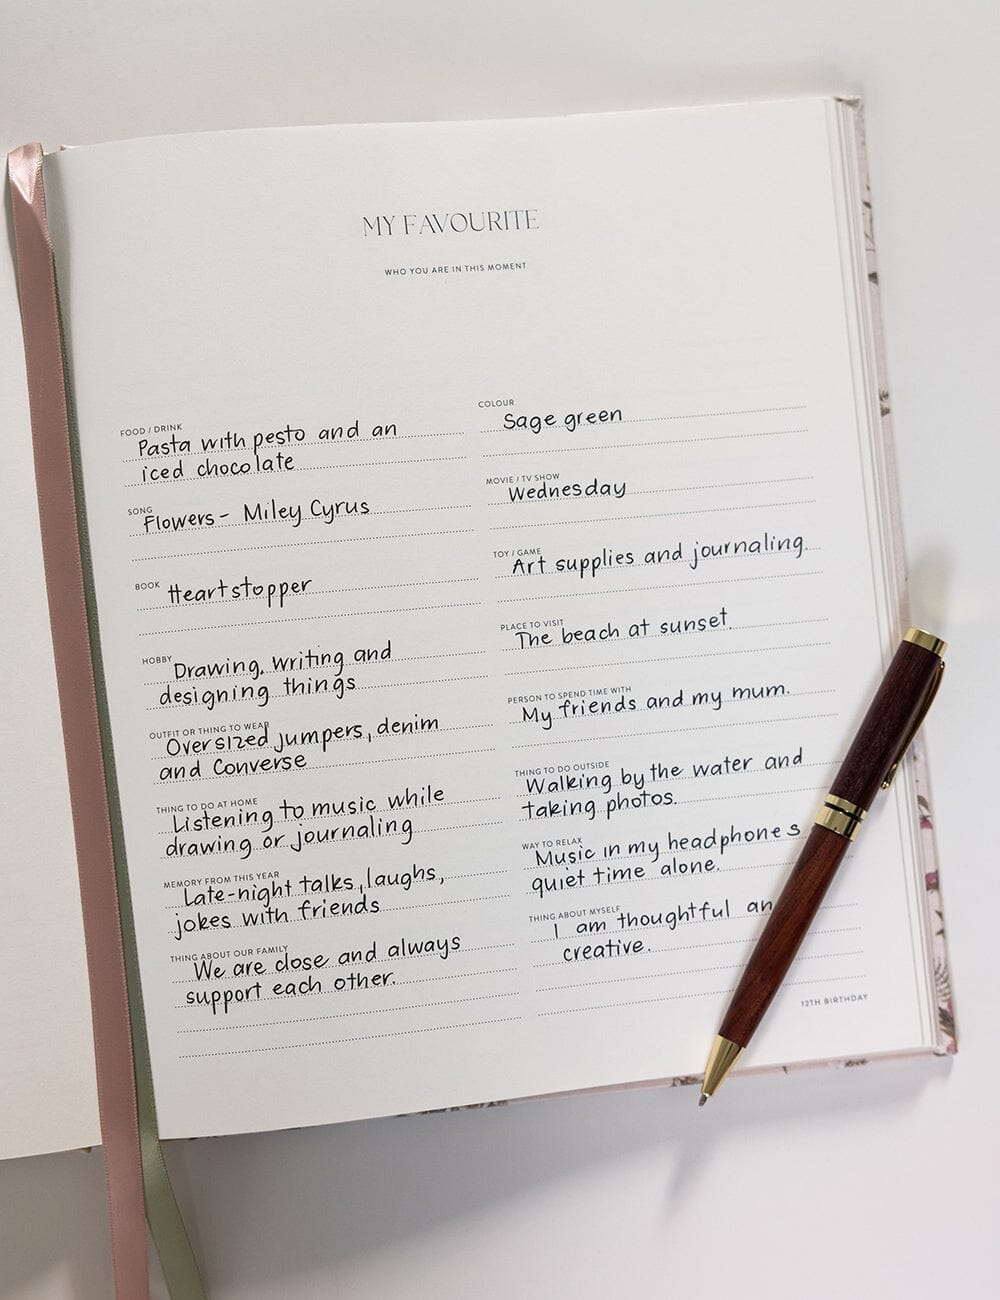 MY FAVOURITE
WHO YOU ARE IN THIS MOMENT
FOOD / DRINK
Pasta with pesto and an
iced chocolate
SONG
Flowers - Miley Cyrus
BOOK
Heartstopper
HOBBY
Drawing, writing and
designing things
OUTFIT OR THING TO WEAR
Oversized jumpers, denim
and Converse
THING TO DO AT HOME
Listening to music while
drawing or journaling
MEMORY FROM THIS YEAR
Late-night talks, laughs,
jokes with friends
THING ABOUT OUR FAMILY
We are close and always
support each other.
COLOUR
Sage green
MOVIE / TV SHOW
Wednesday
TOY / GAME
Art supplies and journaling.
PLACE TO VISIT
The beach at sunset.
PERSON TO SPEND TIME WITH
My friends and my mum.
THING TO DO OUTSIDE
Walking by the water and
taking photos.
WAY TO RELAX
Music in my headphones
quiet time alone.
THING ABOUT MYSELF
I am thoughtful an
creative.
12TH BIRTHDAY